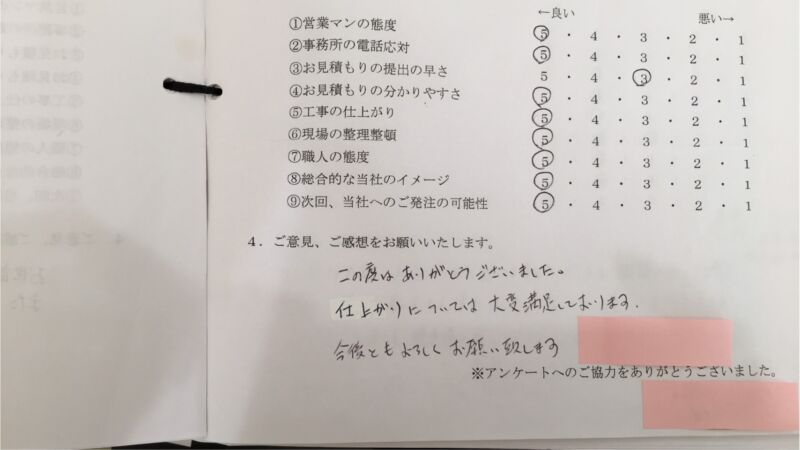 ←良い 悪い→
①営業マンの態度 5・4・3・2・1
②事務所の電話応対 5・4・3・2・1
③お見積もりの提出の早さ 5・4・3・2・1
④お見積もりの分かりやすさ 5・4・3・2・1
⑤工事の仕上がり 5・4・3・2・1
⑥現場の整理整頓 5・4・3・2・1
⑦職人の態度 5・4・3・2・1
⑧総合的な当社のイメージ 5・4・3・2・1
⑨次回、当社へのご発注の可能性 5・4・3・2・1
4．ご意見、ご感想をお願いいたします。
この度はありがとうございました。
仕上がりについては大変満足しております。
今後ともよろしくお願い致します
※アンケートへのご協力をありがとうございました。